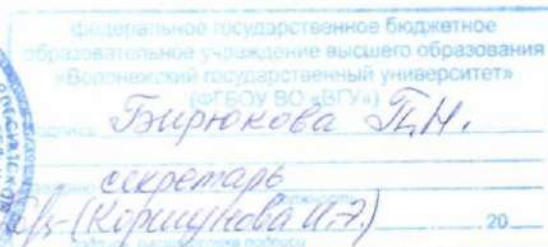 федеральное государственное бюджетное
образовательное учреждение высшего образования
«Воронежский государственный университет»
(ФГБОУ ВО «ВГУ»)
Подпись Бирюкова
секретарь
должность
(Коршунова И.Э.) 20
подпись, расшифровка подписи